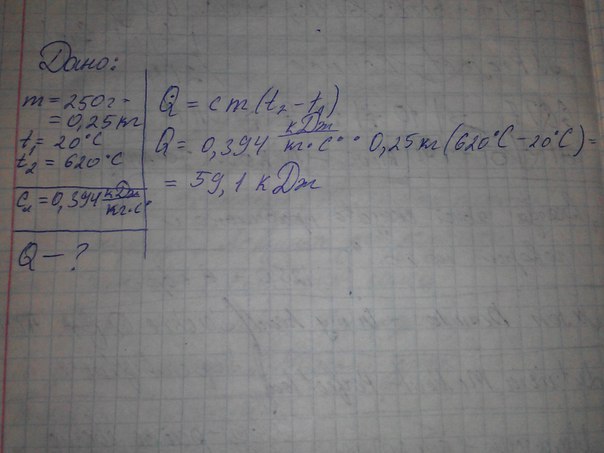 Дано:
m = 250г =
= 0,25 кг
t₁ = 20°C
t₂ = 620°C
C = 0,394 кДж/кг·C°
Q – ?
Q = cm(t₂ – t₁)
Q = 0,394 кДж/кг·C° · 0,25 кг (620°C – 20°C) =
= 59,1 кДж